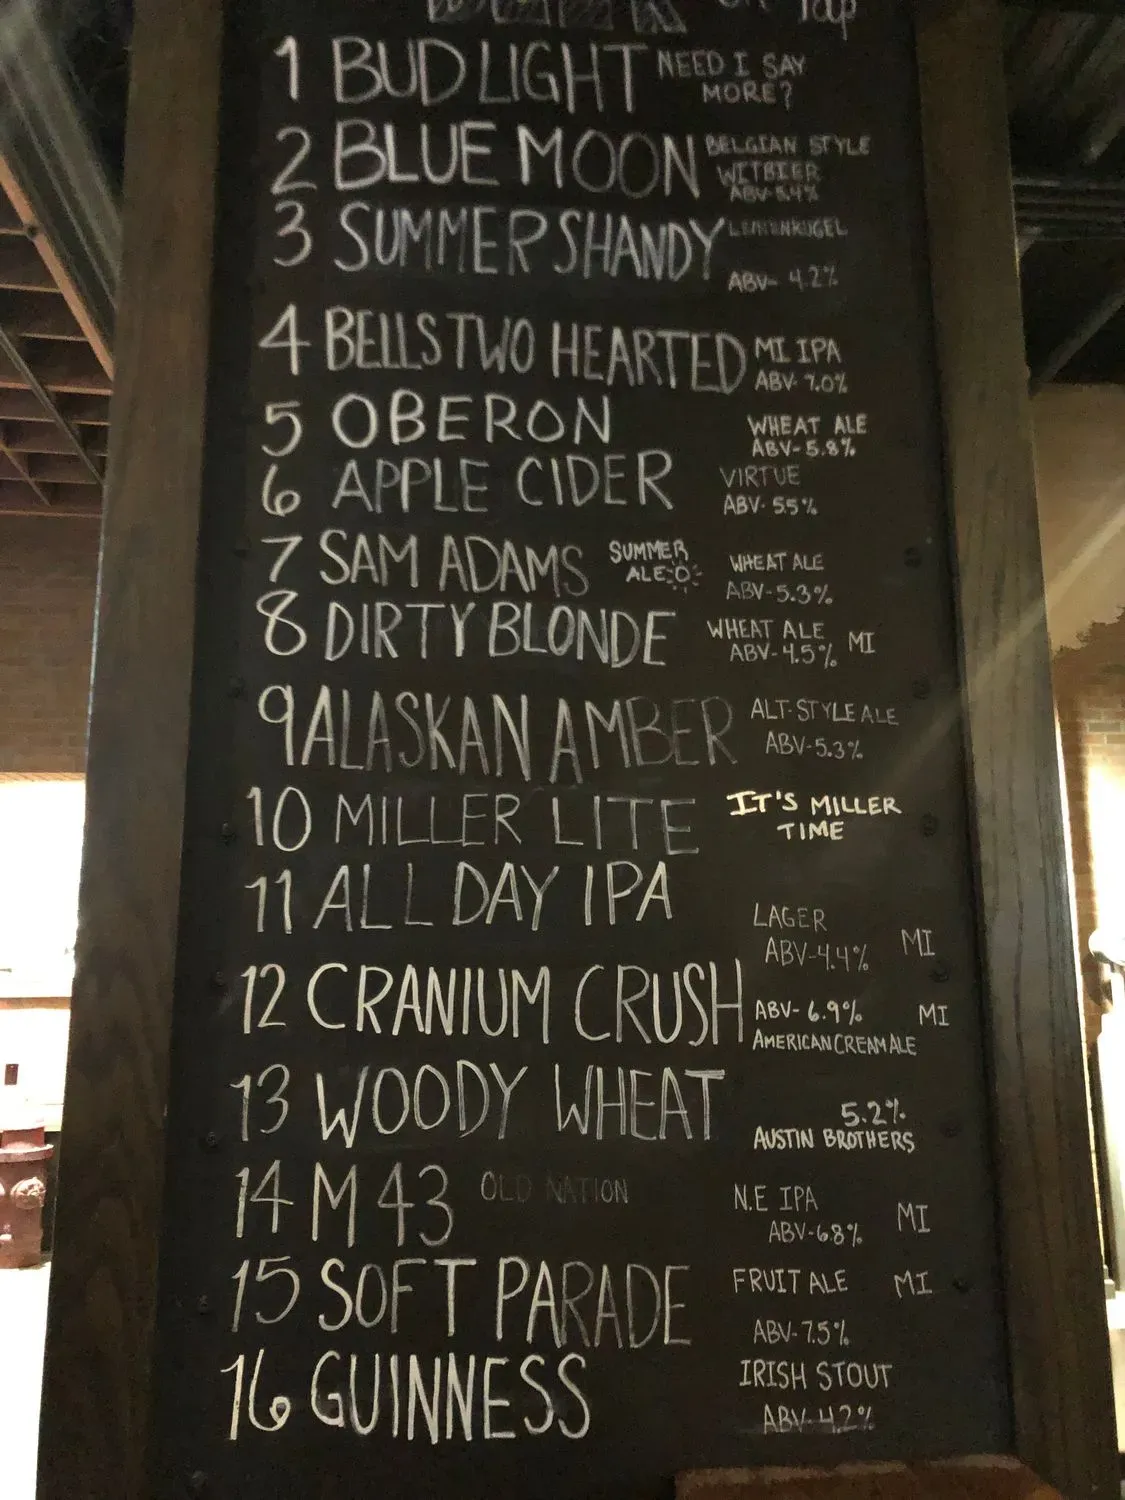 on Tap
1 BUD LIGHT NEED I SAY
MORE?
2 BLUE MOON BELGIAN STYLE
WITBIER
ABV-5.4%
3 SUMMER SHANDY LEINENKUGEL
ABV- 4.2%
4 BELLS TWO HEARTED MI IPA
ABV- 7.0%
5 OBERON WHEAT ALE
ABV-5.8%
6 APPLE CIDER VIRTUE
ABV- 5.5%
7 SAM ADAMS SUMMER
ALE
WHEAT ALE
ABV-5.3%
8 DIRTY BLONDE WHEAT ALE MI
ABV-4.5%
9 ALASKAN AMBER ALT-STYLE ALE
ABV-5.3%
10 MILLER LITE IT'S MILLER
TIME
11 ALL DAY IPA
LAGER
ABV-4.4% MI
12 CRANIUM CRUSH ABV- 6.9% MI
AMERICAN CREAM ALE
13 WOODY WHEAT
5.2%
AUSTIN BROTHERS
14 M 43 OLD NATION N.E IPA
ABV-6.8% MI
15 SOFT PARADE FRUIT ALE MI
ABV-7.5%
16 GUINNESS IRISH STOUT
ABV-4.2%